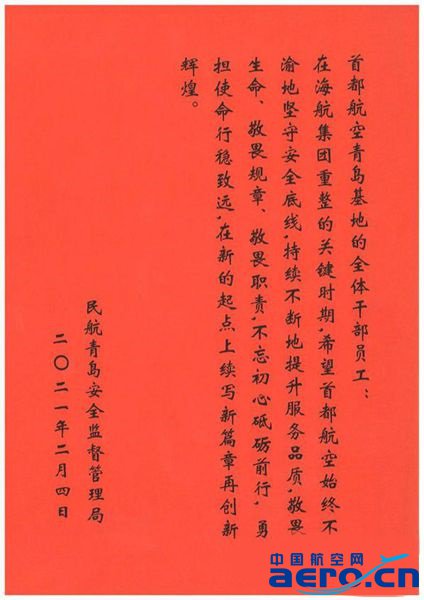 首都航空青岛基地的全体干部员工：
在海航集团重整的关键时期，希望首都航空始终不
渝地坚守安全底线，持续不断地提升服务品质，敬畏
生命、敬畏规章、敬畏职责，不忘初心砥砺前行，勇
担使命行稳致远，在新的起点上续写新篇章再创新
辉煌。
民航青岛安全监督管理局
二〇二一年二月四日
中国航空网
aero.cn